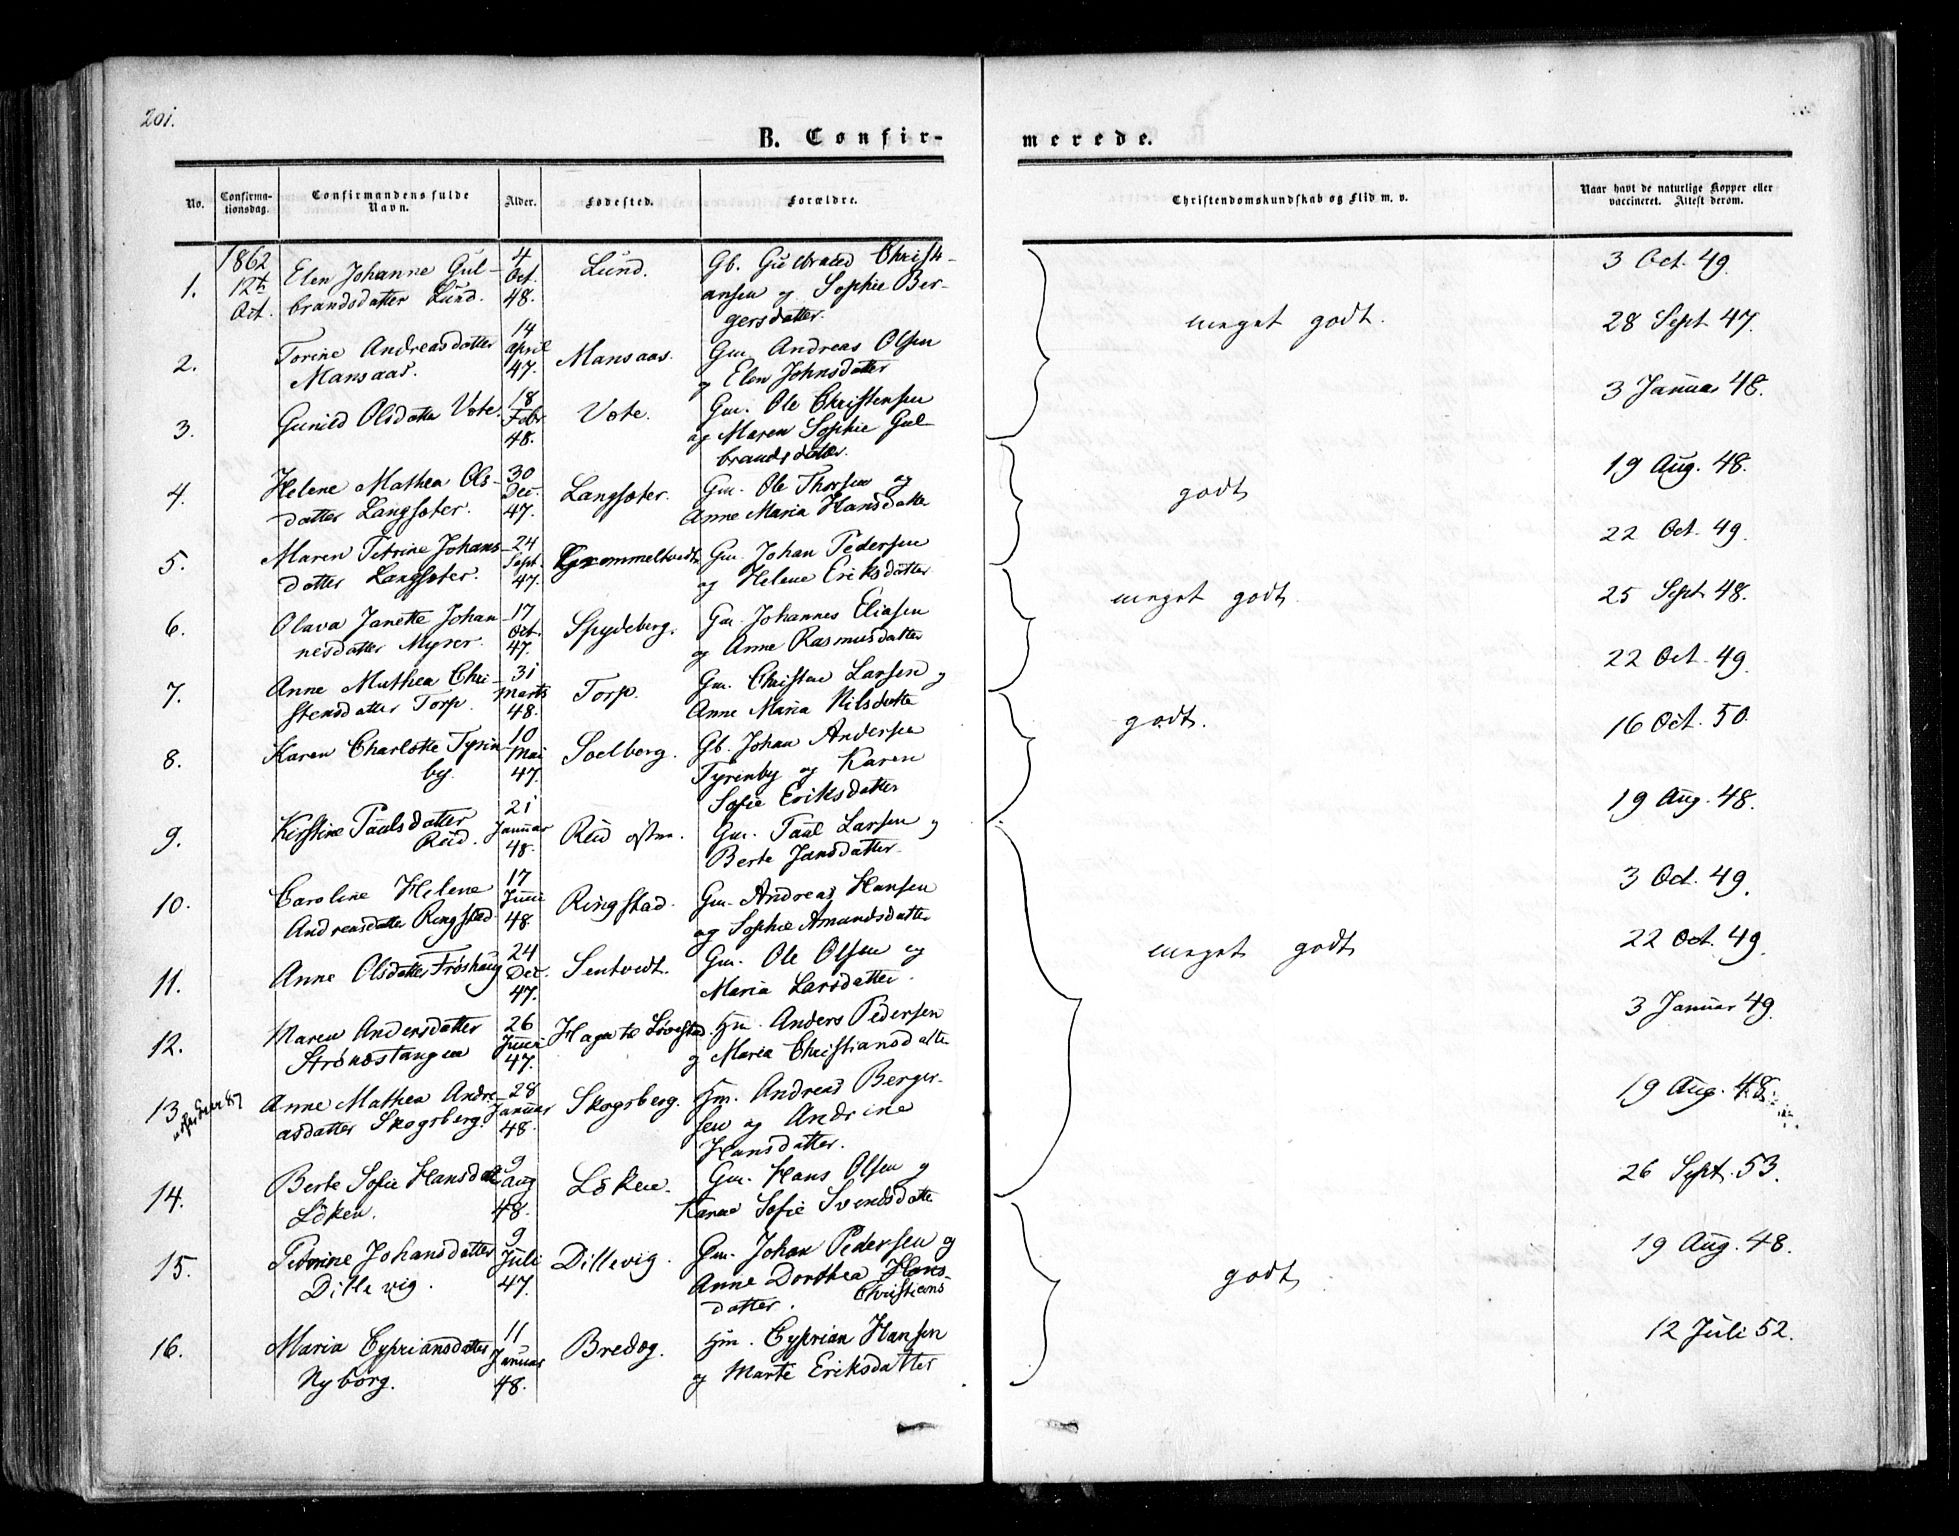 201.
B. Confir-
merede.
No.
Confirma-
tionsdag.
Confirmandens fulde
Navn.
Alder.
Fødested.
Forældre.
Christendomskundskab og Flid m. v.
Naar havt de naturlige Kopper eller
vaccineret. Attest derom.
1862
12te
Oct.
1.
Elen Johanne Gul-
brandsdatter Lund.
4
Oct.
48.
Lund.
Gb. Gulbrand Christi-
ansen og Sophie Ber-
gersdatter.
3 Oct. 49.
2.
Torine Andreasdatter
Mansaas.
14
April
47.
Mansaas.
Gm. Andreas Olsen
og Elen Johnsdatter
meget godt.
28 Sept 47.
3.
Gunild Olsdatter Vote.
18
Febr
48.
Vote.
Gm. Ole Christensen
og Maren Sophie Gul-
brandsdatter.
3 Januar 48.
4.
Helene Mathea Ols-
datter Langsæter.
30
Dec.
47.
Langsæter.
Gm. Ole Thorsen og
Anne Maria Hansdatter
godt
19 Aug. 48.
5.
Maren Petrine Johans-
datter Langsæter.
24
Sept.
47.
Grommeltvedt
Gm. Johan Pedersen
og Helene Eriksdatter
22 Oct. 49.
6.
Olava Janette Johan-
nesdatter Myrer.
17
Oct.
47.
Spydeberg.
Gm. Johannes Eliasen
og Anne Rasmusdatter
meget godt.
25 Sept 48.
7.
Anne Mathea Chri-
stensdatter Torp.
31
Marts
48.
Torp.
Gm. Christen Larsen og
Anne Maria Nilsdatter
22 Oct. 49.
8.
Karen Charlotte Tyrin-
by.
10
Mai
47.
Soelberg.
Gb. Johan Andersen
Tyrinby og Karen
Sofie Eriksdatter
godt.
16 Oct. 50.
9.
Kirstine Paulsdatter
Rud.
21
Januar
48.
Rud østre.
Gm. Paul Larsen og
Berte Jansdatter
19 Aug. 48.
10.
Caroline Helene
Andreasdatter Ringstad
17
Juni
48.
Ringstad.
Gm. Andreas Hansen
og Sophie Amundsdatter
3 Oct. 49.
11.
Anne Olsdatter Frøshaug
24
Dec.
47.
Sentvedt.
Gm. Ole Olsen og
Maria Larsdatter.
meget godt
22 Oct. 49.
12.
Maren Andersdatter
Strønæstangen
26
Juni
47.
Haga til Løvestad.
Hm. Anders Pedersen
og Maria Christiansdatter
3 Januar 49.
13
Anne Mathea Andre-
asdatter Skogsberg.
28
Januar
48.
Skogsberg.
Hm. Andreas Berger-
sen og Andrine
Hansdatter.
19 Aug. 48.
14.
Berte Sofie Hansdatter
Løken.
9
Aug
48.
Løken.
Gm. Hans Olsen og
Karen Sofie Svendsdatter
26 Sept. 53.
15.
Petrine Johansdatter
Dillevig.
9
Juli
47.
Dillevig.
Gm. Johan Pedersen og
Anne Dorthea Hans-
Christians-
datter.
godt
19 Aug. 48.
16.
Maria Cypriansdatter
Nyborg.
11
Januar
48.
Bredog.
Hm. Cyprian Hansen
og Marte Eriksdatter
12 Juli 52.